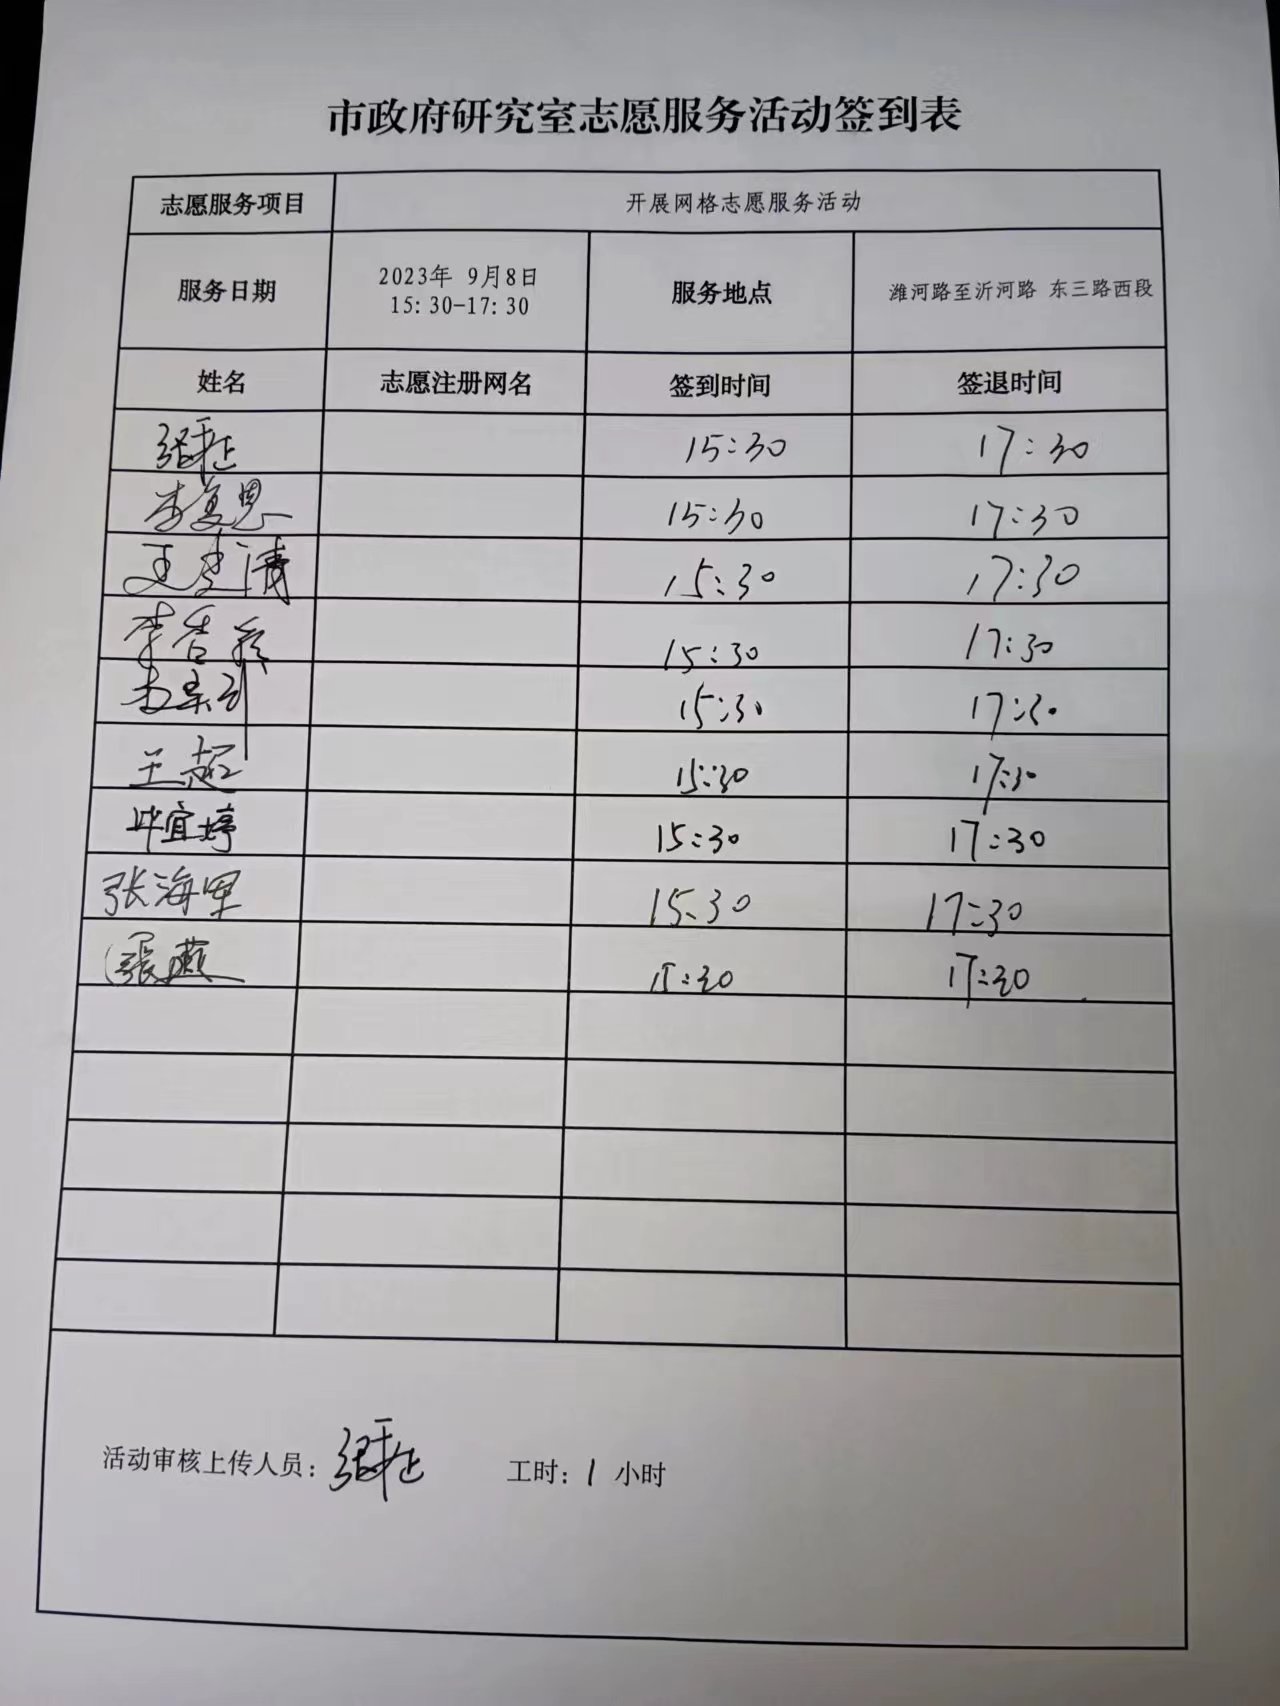 市政府研究室志愿服务活动签到表
志愿服务项目 开展网格志愿服务活动
服务日期 2023年 9月8日 15:30-17:30 服务地点 潍河路至沂河路 东三路西段
姓名 志愿注册网名 签到时间 签退时间
15:30 17:30
李复恩 15:30 17:30
15:30 17:30
15:30 17:30
15:30 17:30
王超 15:30 17:30
毕宜婷 15:30 17:30
张海军 15:30 17:30
張燕 15:30 17:30
活动审核上传人员: 工时: 1 小时